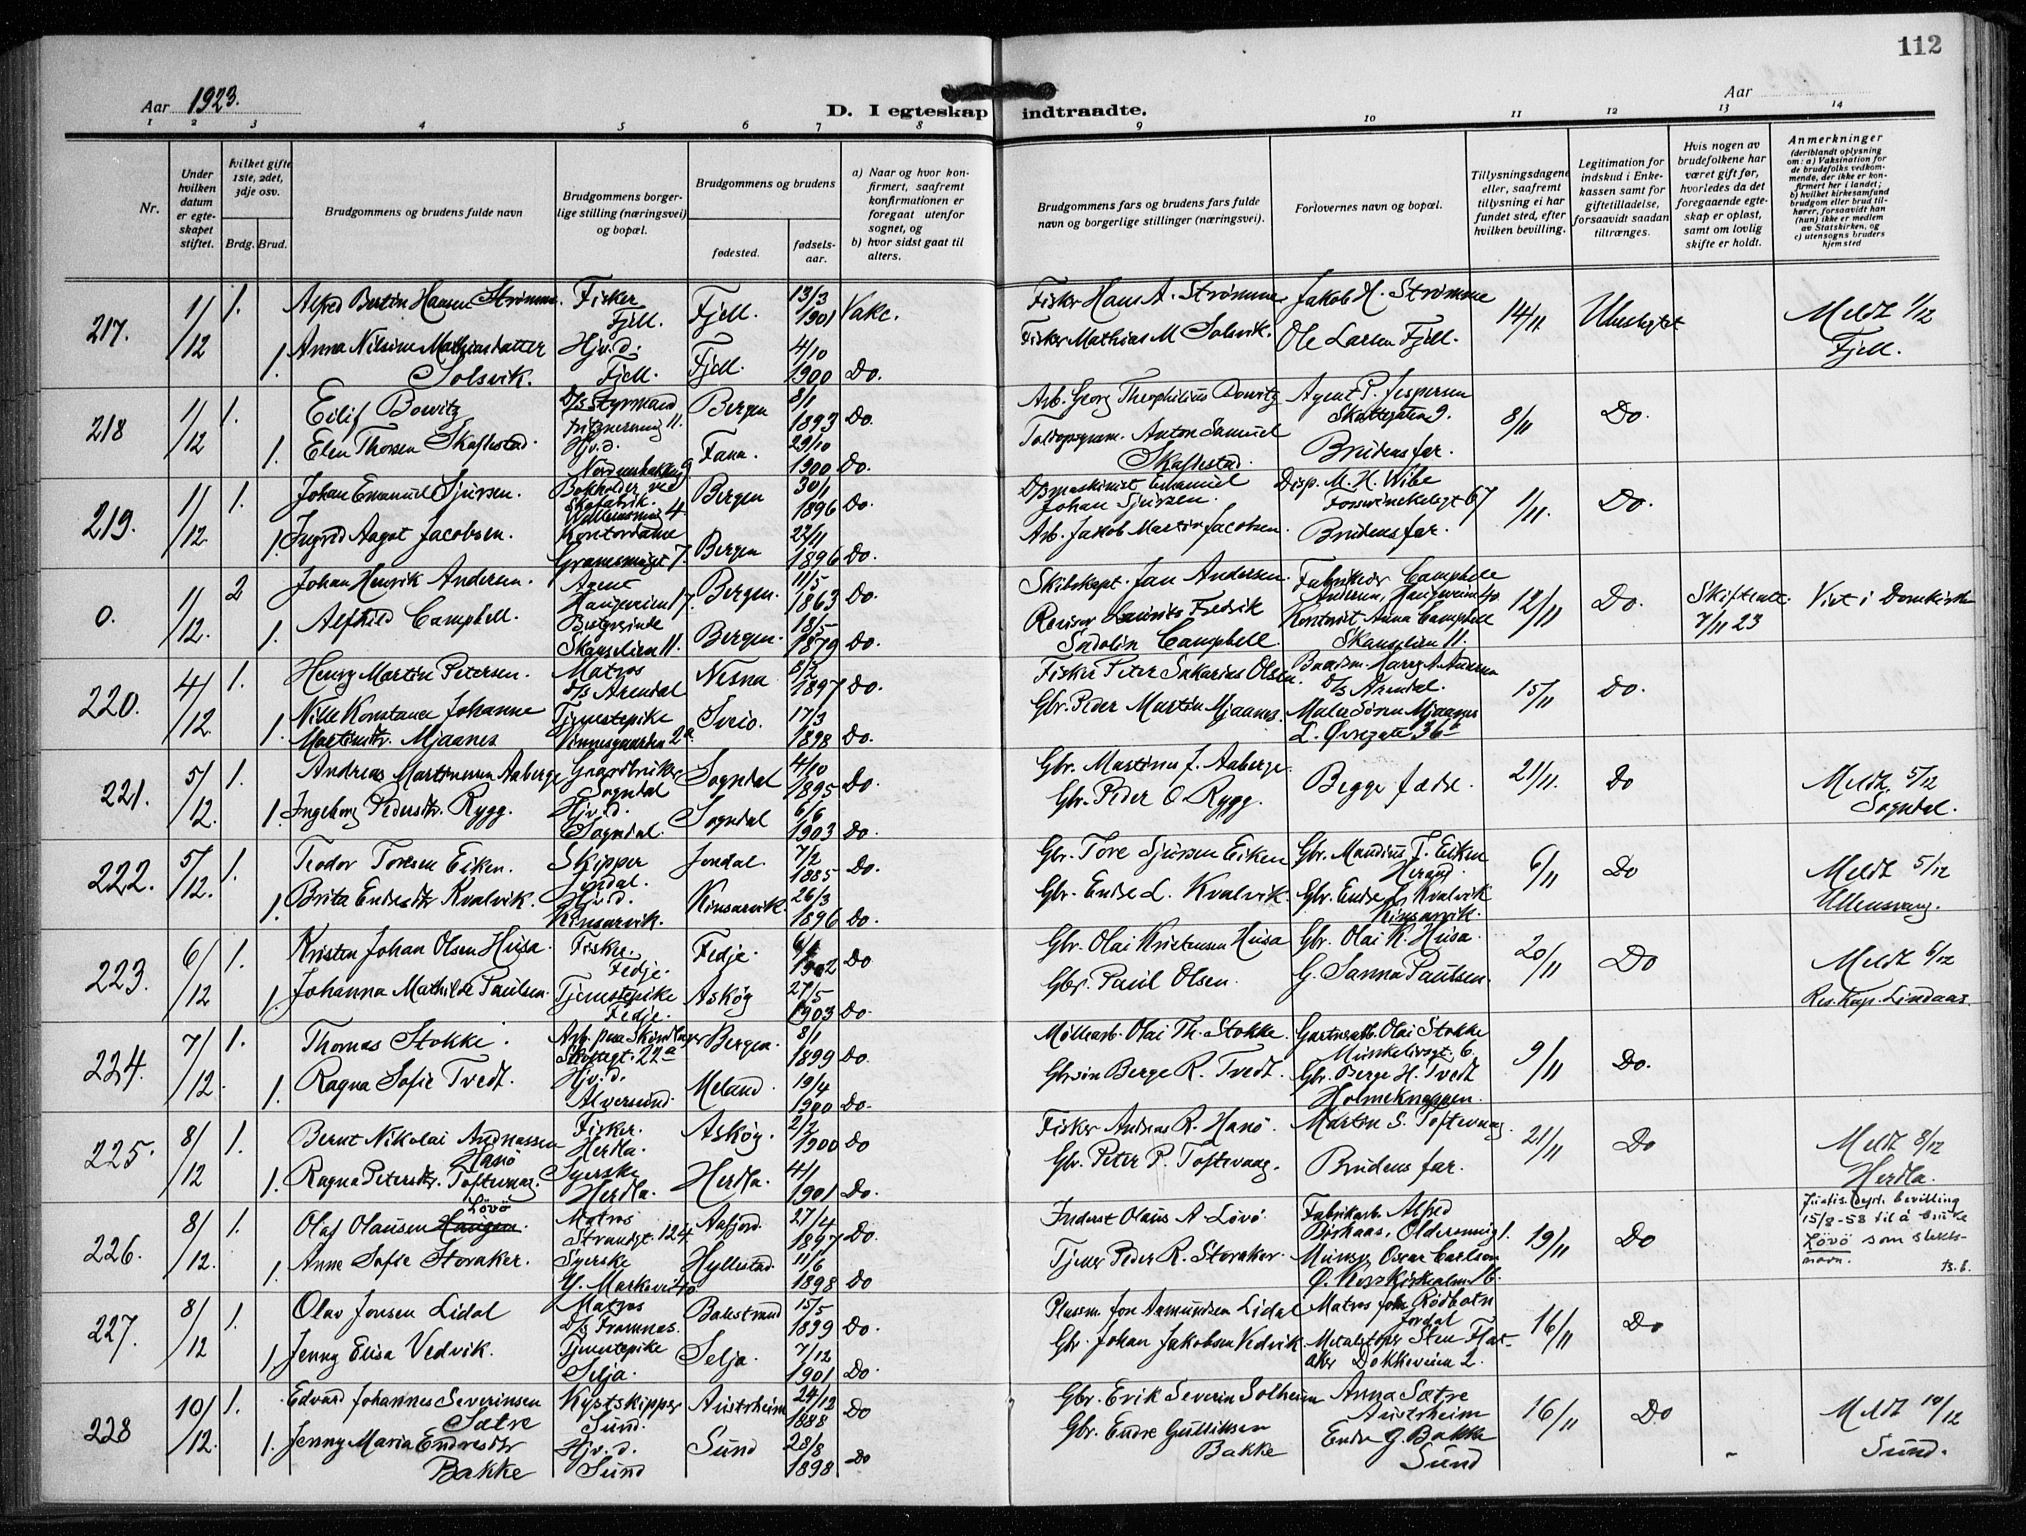 112
Aar 1923.
Aar
D. I egteskap indtraadte.
1 2 3 4 5 6 7 8 9 10 11 12 13 14
Nr.
Under hvilken datum er egteskapet stiftet.
hvilket gifte 1ste, 2det, 3dje osv.
Brdg. Brud.
Brudgommens og brudens fulde navn
Brudgommens borgerlige stilling (næringsvei) og bopæl.
Brudgommens og brudens
fødested.
fødselsaar.
a) Naar og hvor konfirmert, saafremt konfirmationen er foregaat utenfor sognet, og
b) hvor sidst gaat til alters.
Brudgommens fars og brudens fars fulde navn og borgerlige stillinger (næringsvei).
Forlovernes navn og bopæl.
Tillysningsdagene eller, saafremt tillysning ei har fundet sted, efter hvilken bevilling.
Legitimation for indskud i Enkekassen samt for giftetilladelse, forsaavidt saadan tiltrænges.
Hvis nogen av brudefolkene har været gift før, hvorledes da det foregaaende egteskap er opløst, samt om lovlig skifte er holdt.
Anmerkninger (deriblandt oplysning om: a) Vaksination for de brudefolks vedkommende, der ikke er konfirmert her i landet; b) hvilket kirkesamfund brudgom eller brud tilhører, forsaavidt han (hun) ikke er medlem av Statskirken, og c) utensogns bruders hjemsted
217. 1/12 1. Alfred Bertin Hansen Strømme. Fisker Fjell. Fjell. 13/3 1901 Vakc. Fisker Hans A. Strømme Jakob H. Strømme 14/11 Ubeslegtet Meldt 1/12 Fjell.
1. Anna Nilsine Mathiasdatter Solsvik. Hjv.d. Fjell. Fjell. 4/10 1900 Do. Fisker Mathias M Solsvik. Ole Larsen Fjell.
218 1/12 1. Eilif Bowitz D/s Styrmand Bergen 8/1 1893 Do. Arb. Georg Theophilius Bowitz Agent P. Jespersen Skottegaten 9. 8/11 Do.
1. Elen Thorsen Skaflestad. Hjv.d. Fana. 29/10 1900 Do. Anton Samuel Skaflestad. Brudens far.
219. 1/12 1. Johan Emanuel Sjursen. Bokholder ved Bergen 30/1 1896 Do. D/s maskinist Johan Sjursen. Disp. M. H. Wibe 67 1/11. Do.
1. Ingrid Aagot Jacobsen. Kontordame 7. Bergen 1896 Do. Arb. Jakob Martin Jacobsen. Brudens far.
0. 1/12. 2 Johan Henrik Andersen. Agent Haugeveien 17. Bergen. 11/5 1863 Do. Skibskapt. Jan Andersen. 12/11 Do. 7/11 23 Viet i Domkirken
1. Alfhild Campbell. Skanselien 11. Bergen. 18/5 1879 Do. Revisor Fredrik Campbell. Kontorist Anna Campbell Skanselien 11.
220. 4/12. 1. Henry Martin Petersen. Matros d/s Arendal Nesna 1897 Do. Fisker Peter Sakarias Olsen. Baadsm. Harry A. Andersen d/s Arendal. 15/11 Do.
1. Nille Konstance Johanne Martinsdtr. Mjaanes Tjenestepike Vinnesgaarden 2a Sveio. 17/3 1898 Do. Gbr. Peder Martin Mjaanes. Maler Søren Mjaanes L. Øvregate 36a
221. 5/12. 1. Andreas Martinsen Aaberge Gaardbruker Sogndal Sogndal 4/10 1895 Do. Gbr. Martinus J. Aaberge. Begge fædre. 21/11. Do Meldt 5/12 Sogndal.
1. Ingeborg Pedersdtr. Rygg. Hjv.d. Sogndal. Sogndal 6/6 1903 Do. Gbr. Peder O. Rygg.
222. 5/12. 1. Teodor Toresen Eiken. Skipper Jondal. Jondal. 7/2 1885 Do. Gbr. Tore Sjursen Eiken Gbr. Mandius T. Eiken Herand. 6/11 Do Meldt 5/12 Ullensvang.
1. Brita Endresdtr Kvalvik. Hjv.d. Kinsarvik. Kinsarvik. 26/3 1896 Do. Gbr. Endre L. Kvalvik. Gbr. Endre L. Kvalvik Kinsarvik.
223. 6/12 1. Kristen Johan Olsen Husa. Fisker. Fedje. Fedje. 1902 Do Gbr. Olai Kristensen Husa Gbr. Olai K. Husa. 20/11 Do Meldt 6/12 Res. Kap. Lindaas
1. Johanna Mathilde Paulsen. Tjenestepike Fedje. Askøy 27/5 1903 Do. Gbr. Paul Olsen. G. Sanna Paulsen.
224. 7/12. 1. Thomas Stokke. Skottegt. 22a Bergen. 8/1 1899 Do. Møllearb. Olai Th. Stokke. Gartnerarb. Olai Stokke Munkelivsgt. 6. 9/11 Do.
1. Ragna Sofie Tvedt. Hjv.d. Alversund. Meland. 19/4 1900 Do. Berge R. Tvedt. Gbr. Berge H. Tvedt Holmeknappen.
225. 8/12 1. Bernt Nikolai Andreassen Hanø Fisker. Herdla. Askøy. 2/2 1900 Do Fisker Andreas R. Hanø. Marton S. Toftevaag. 21/11 Do Meldt 8/12 Herdla.
1. Ragna Petersdtr. Toftevaag. Syerske Herdla. Herdla. 4/1 1901 Do. Gbr. Peter P. Toftevaag. Brudens far.
226. 8/12. 1. Olaf Olausen Haugen. Løvø Matros Strandgt. 124 Aafjord. 27/4 1897 Do. Inderst Olaus A. Løvø. Fabrikarb. Alfred 19/11 Do Justis. dept. bevilling 15/8-58 til å bruke Løvø som slektsnavn.
1. Anne Sofie Storaker. Syerske Hyllestad 11/6 1898 Do Tjener Peder R. Storaker. Oscar Carlson
227. 8/12 1. Olav Jonsen Lidal Matros D/s Framnes. Balestrand 15/5 1899 Do. Plassm. Jon Aamundsen Lidal Matros John Rødbotn Jordal 16/11 Do
1. Jenny Elisa Vedvik. Tjenestepike Selja. Selja. 7/12 1901 Do. Gbr. Johan Jakobsen Vedvik. Sten Flataker Dokkeveien 2.
228 10/12. 1. Edvard Johannes Severinsen Sætre Kystskipper Sund. Austrheim 24/12 1888 Do Gbr. Erik Severin Solheim Anna Sætre Austrheim 16/11 Do Meldt 10/12 Sund.
1. Jenny Maria Endresdtr Bakke Hjv.d. Sund Sund 28/8 1898 Do Gbr. Endre Gulliksen Bakke Endre G. Bakke Sund